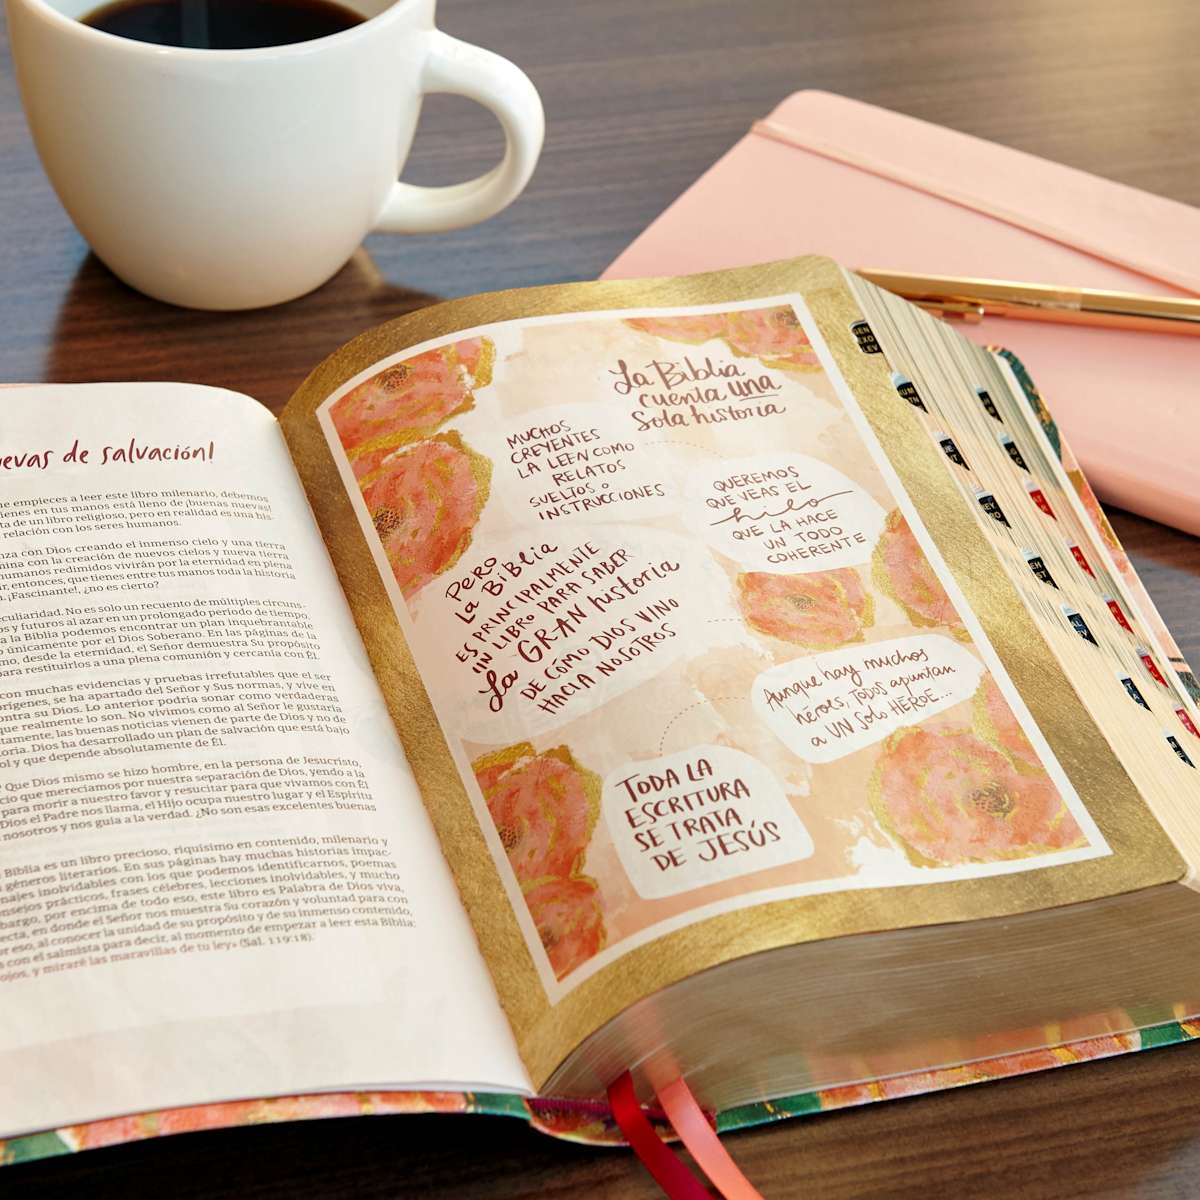 de salvación!
empieces a leer este libro milenario, debemos
tienes en tus manos está lleno de ¡buenas nuevas!
de un libro religioso, pero en realidad es una his-
relación con los seres humanos.
con Dios creando el inmenso cielo y una tierra
con la creación de nuevos cielos y nueva tierra
humanos redimidos vivirán por la eternidad en plena
entonces, que tienes entre tus manos toda la historia
¡Fascinante!, ¿no es cierto?
No es solo un recuento de múltiples circuns-
y futuros al azar en un prolongado período de tiempo.
a la Biblia podemos encontrar un plan inquebrantable
únicamente por el Dios Soberano. En las páginas de la
desde la eternidad, el Señor demuestra Su propósito
para restituirlos a una plena comunión y cercanía con Él.
con muchas evidencias y pruebas irrefutables que el ser
se ha apartado del Señor y Sus normas, y vive en
contra su Dios. Lo anterior podría sonar como verdaderas
que realmente lo son. No vivimos como al Señor le gustaría
las buenas noticias vienen de parte de Dios y no de
Dios ha desarrollado un plan de salvación que está bajo
y que depende absolutamente de Él.
Que Dios mismo se hizo hombre, en la persona de Jesucristo,
que merecíamos por nuestra separación de Dios, yendo a la
para morir a nuestro favor y resucitar para que vivamos con Él
Dios el Padre nos llama, el Hijo ocupa nuestro lugar y el Espíritu
nosotros y nos guía a la verdad. ¿No son esas excelentes buenas
Biblia es un libro precioso, riquísimo en contenido, milenario y
géneros literarios. En sus páginas hay muchas historias impac-
inolvidables con los que podemos identificarnos, poemas
prácticos, frases célebres, lecciones inolvidables, y mucho
por encima de todo eso, este libro es Palabra de Dios viva,
en donde el Señor nos muestra Su corazón y voluntad para con
eso, al conocer la unidad de su propósito y de su inmenso contenido,
con el salmista para decir, al momento de empezar a leer esta Biblia:
ojos, y miraré las maravillas de tu ley» (Sal. 119:18).
La Biblia
cuenta una
sola historia
MUCHOS
CREYENTES
LA LEEN COMO
RELATOS
SUELTOS o
INSTRUCCIONES
QUEREMOS
QUE VEAS EL
hilo
QUE LA HACE
UN TODO
COHERENTE
PERO
LA BIBLIA
ES PRINCIPALMENTE
UN LIBRO PARA SABER
La GRAN historia
DE CÓMO DIOS VINO
HACIA NOSOTROS
Aunque hay muchos
héroes, Todos apuntan
a UN Solo HÉROE...
TODA LA
ESCRITURA
SE TRATA
DE JESÚS
GEN
EXO
LEV